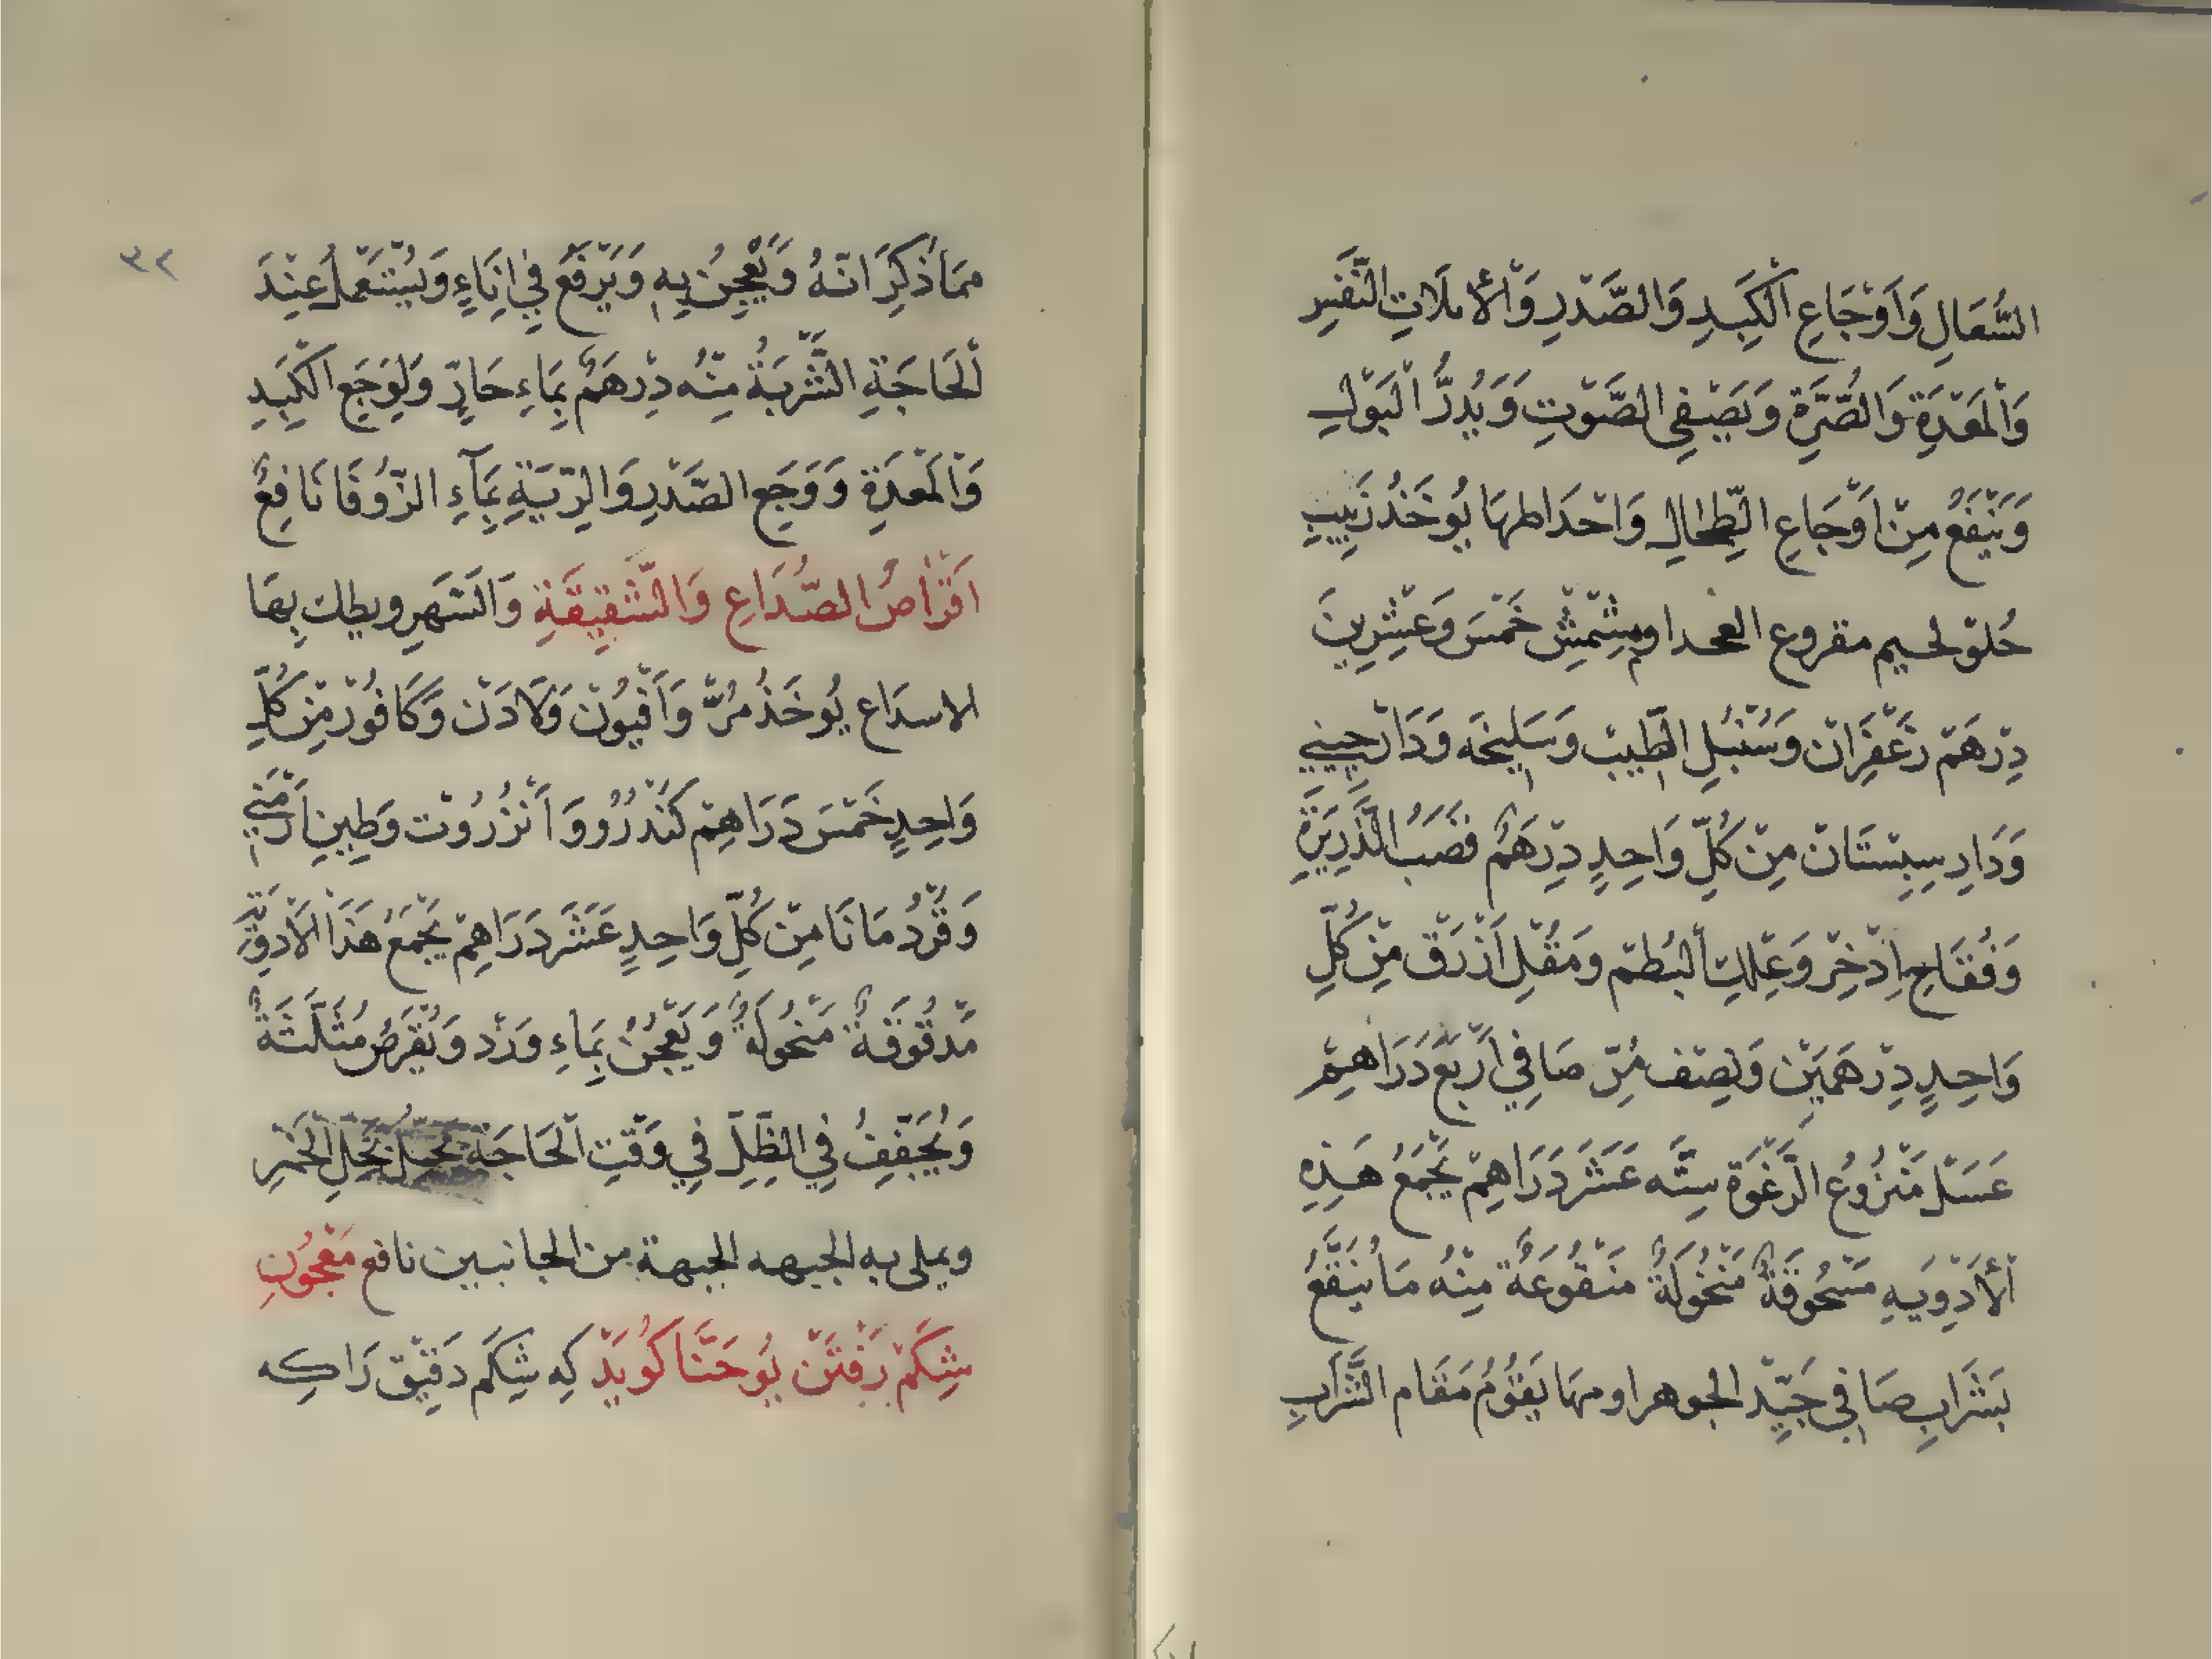 السُّعَالِ وَاَوْجَاعِ الْكَبِدِ وَالصَّدْرِ وَالْأملَاتِ النَّفَسِ
وَالْمَعْدَةِ وَالصُّرَّةِ وَيَصْفِى الصَّوْتِ وَيُدِرُّ الْبَوْلِ
وَيَنْفَعُ مِنْ اَوْجَاعِ الطِّحَالِ وَاحْدَاطهَا يُوخَذُ زَبِيبِ
حُلوْ لحيم مقروع العحد اومِشْمِشْ خَمْسَ وَعَشْرِينَ
دِرْهَمْ زَعْفِرَانْ وَسُنْبُلِ الطِّيبْ وَسَلِيخَه وَدَارْچِينِي
وَدَارِ سِبِسْتَانْ مِنْ كُلِّ وَاحِدٍ دِرْهَمٌ قَصَبُ الذَّرِيرَةِ
وَفُقَاحِ اِذْخِرْ وَعِلْكِ الْبُطمْ وَمَقْلِ اَزْرَقْ مِنْ كُلِّ
وَاحِدٍ دِرْهَمَيْنِ وَنِصْف مُرّ صَافِي اَرْبَعْ دَرَاهِمْ
عَسَلْ مَنْزُوعُ الرَّغْوَة سِتَّه عَشَرَ دَرَاهِمْ يُجْمَعُ هَذِهِ
الْأَدْوِيَهِ مَسْحُوقَةٌ مَنْخُولَةٌ مَنْقُوعَةٌ مِنْهُ مَا يُنَقَّعُ
بَشَرَابِ صَافِى جَيِّدْ الجوهر اومهَا يَقُوْمُ مَقَام الشَّرَابِ
ممَا ذُكِرَ انهُ وَيُعْجِنُ بِهِ وَيَرْفَعُ فِي اِنَاءٍ وَيُسْتَعْملُ عِنْدَ
الْحَاجَةِ الشَّرْبَةُ مِنْه دِرْهَمٌ بِمَاءِ حَارٍّ وَلِوَجَعِ الْكَبِدِ
وَالْمَعْدَةِ وَوَجَعِ الصَّدْرِ وَالرِّيَةِ بِمَآءِ الزُّوفَا نَافِعٌ
اَقْرَاصُ الصُّدَاعِ وَالشَّقِيقَةِ وَالسَّهَرِ ويطلى بِهَا
الاسدَاع يُوخَذُ مُرّ وَاَفْيُونْ وَلَادَنْ وَكَافُوْر مِنْ كُلِّ
وَاحِدٍ خَمْسَ دَرَاهِمْ كَنْدُرُو وَ اَنْزُرُوتْ وَطِينِ اَرْمَنِي
وَقَرْدُ مَانَا مِنْ كُلِّ وَاحِدٍ عَشَرَ دَرَاهِمْ يُجْمَعُ هَذَا الْاَدوِيَّة
مَدْقُوقَةٌ مَنْخُولَةٌ وَيُعْجَنُ بِمَاءِ وَرْد وَيُقْرَصُ مُثَلَّثَةٌ
وَيُجَفَّفُ فِي الظِّلِّ فِي وَقْتِ الْحَاجَة بِخَلِ الْخَمْرِ
ويملى به الجبهه الجبهة من الجانبين نافع مَعْجُونِ
شِكَمْ رَفْتَنْ يُوحَنَّا كُويَدْ كِه شِكَم دَقِيْق رَا كِه
٣٢